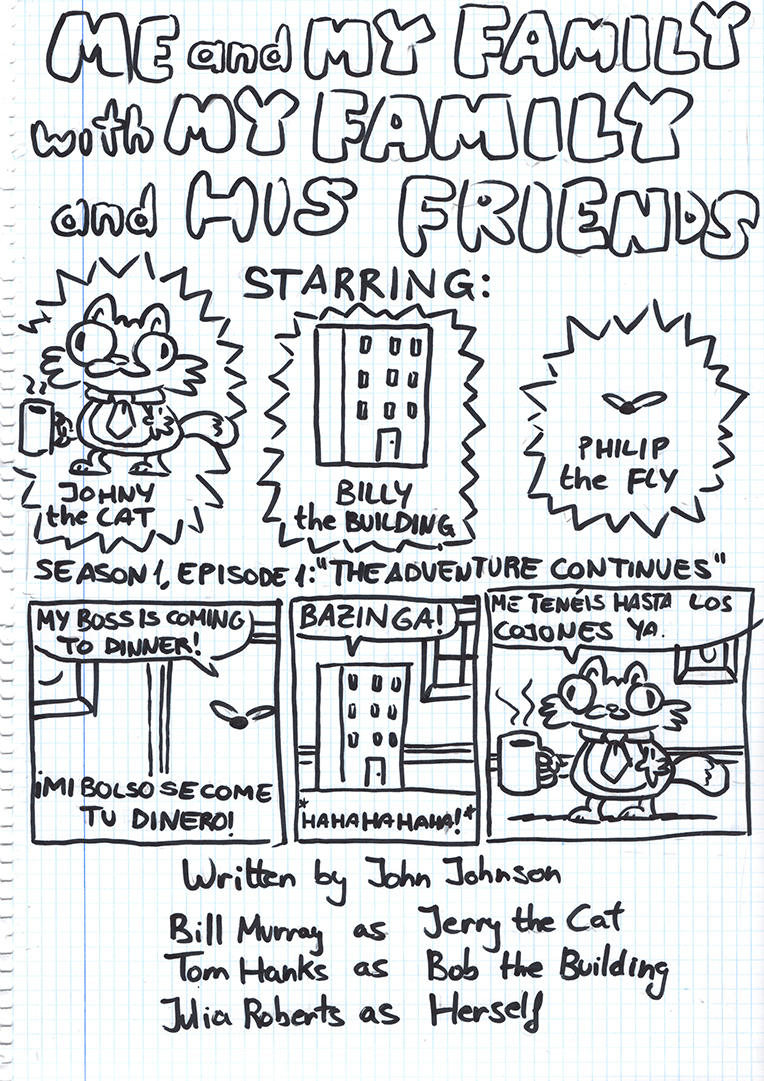 ME and MY FAMILY
with MY FAMILY
and HIS FRIENDS
STARRING:
JOHNY
the CAT
BILLY
the BUILDING
PHILIP
the FLY
SEASON 1, EPISODE 1: "THE ADVENTURE CONTINUES"
MY BOSS IS COMING
TO DINNER!
¡MI BOLSO SE COME
TU DINERO!
BAZINGA!
*HAHAHAHAHA!*
ME TENÉIS HASTA LOS
COJONES YA.
Written by John Johnson
Bill Murray as Jerry the Cat
Tom Hanks as Bob the Building
Julia Roberts as Herself